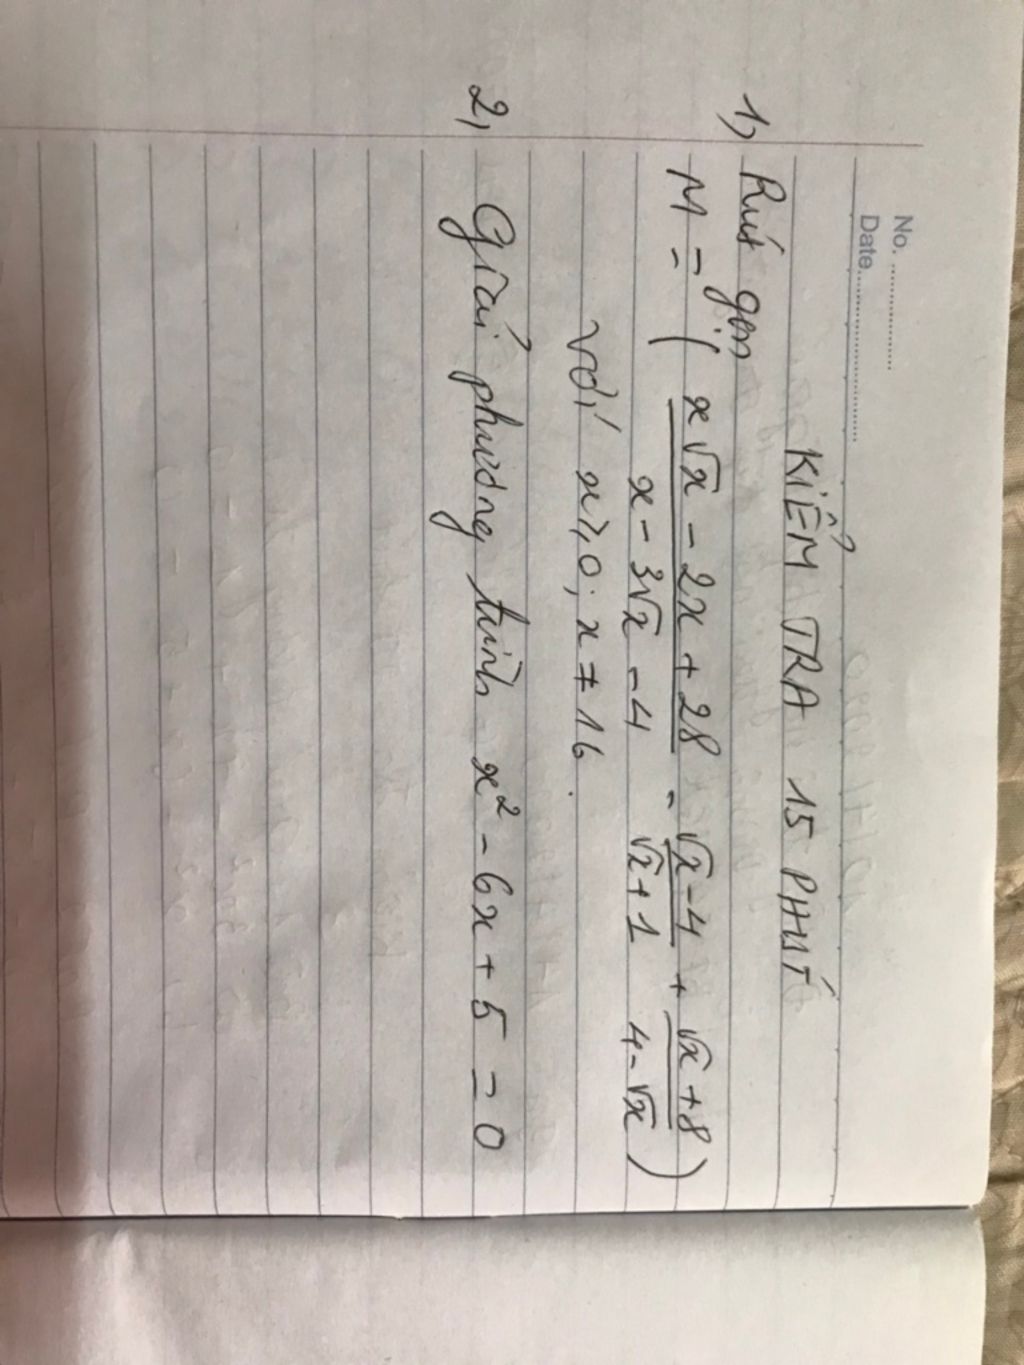 No. ..................
Date..............................
KIỂM TRA 15 PHÚT
1, Rút gọn
M = ( x√x - 2x + 28 / x - 3√x - 4 - √x - 4 / √x + 1 + √x + 8 / 4 - √x )
với x ⩾ 0; x ≠ 16.
2, Giải phương trình x² - 6x + 5 = 0